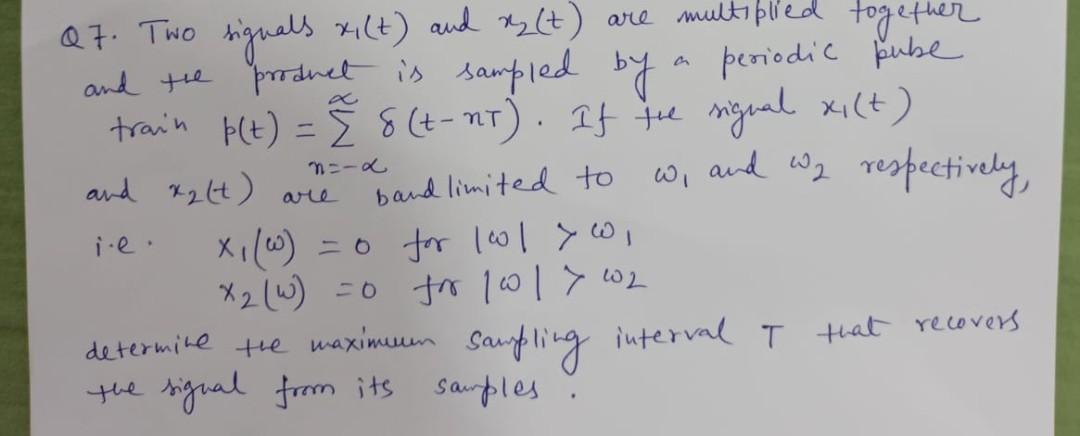 Q7. Two signals x₁(t) and x₂(t) are multiplied together
and the product is sampled by a periodic pulse
train p(t) = ∞Σn=-∞ δ(t-nT). If the signal x₁(t)
and x₂(t) are bandlimited to ω₁ and ω₂ respectively,
i.e. X₁(ω) = 0 for |ω| > ω₁
X₂(ω) = 0 for |ω| > ω₂
determine the maximum sampling interval T that recovers
the signal from its samples.